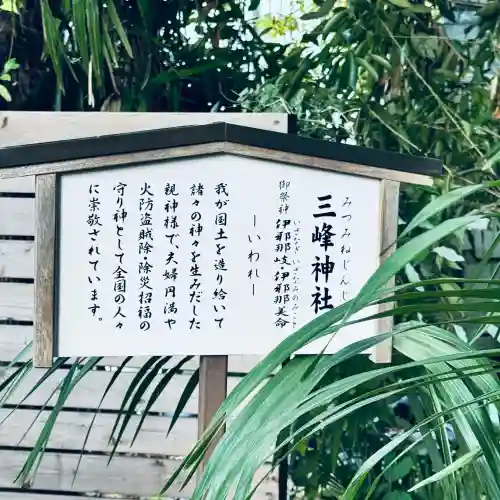 みつみねじんじ
三峰神社
いざなぎ いざなみのみこと
御祭神 伊邪那岐・伊邪那美命
―いわれ―
我が国土を造り給いて
諸々の神々を生みだした
親神様で、夫婦円満や
火防盗賊除・除災招福の
守り神として全国の人々
に崇敬されています。